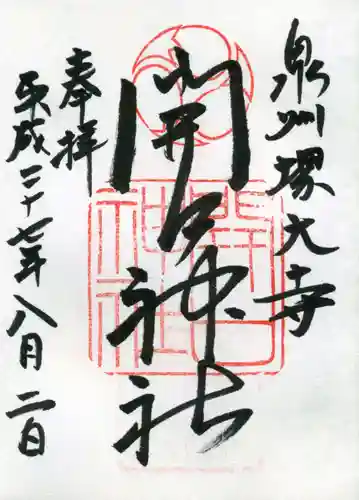 泉州堺大寺
開口神社
奉拝
平成二十七年八月二日
開口
神社